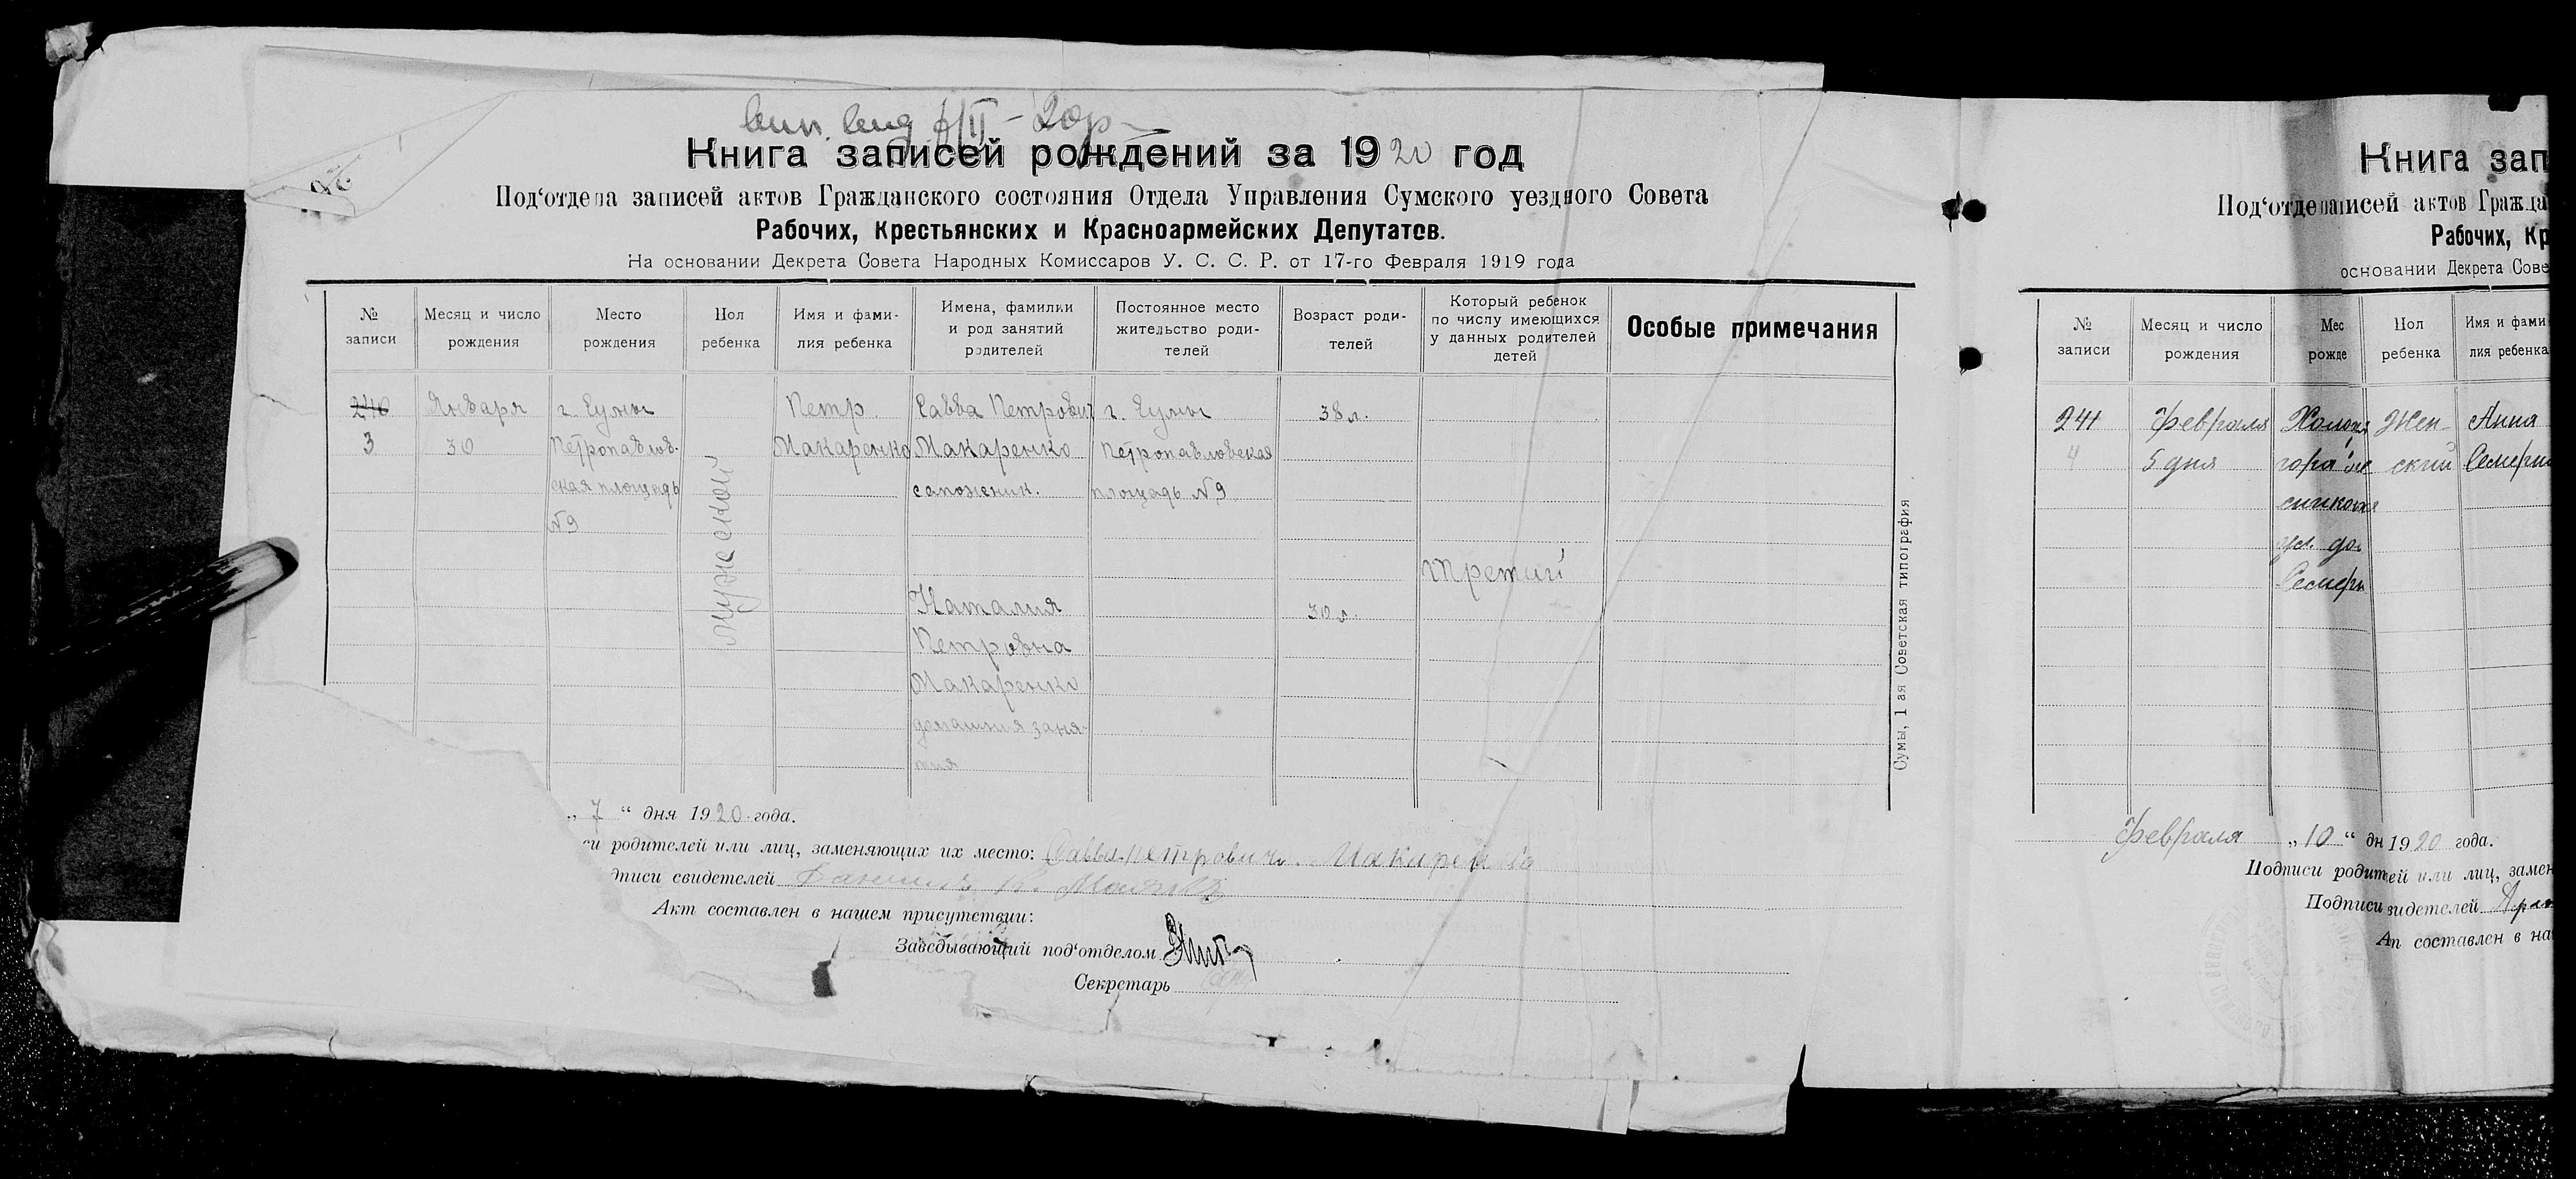 Книга записей рождений за 1920 год
Под'отдела записей актов Гражданского состояния Отдела Управления Сумского уездного Совета
Рабочих, Крестьянских и Красноармейских Депутатов.
На основании Декрета Совета Народных Комиссаров У. С. С. Р. от 17-го Февраля 1919 года
№ записи
Месяц и число рождения
Место рождения
Пол ребенка
Имя и фамилия ребенка
Имена, фамилии и род занятий родителей
Постоянное место жительство родителей
Возраст родителей
Который ребенок по числу имеющихся у данных родителей детей
Особые примечания
240
3
Января
30
г. Сумы
Петропавлов-
ская площадь
№ 9
мужской
Петр
Макаренко
Савва Петрович
Макаренко
сапожник.
г. Сумы
Петропавловская
площадь № 9
38 л.
третий
Наталия
Петровна
Макаренко
домашния заня-
тия
30 л.
Сумы, 1 ая Советская типография
„ 7 “ дня 1920 года.
родителей или лиц, заменяющих их место: Савва Петрович Макаренко
дписи свидетелей
Акт составлен в нашем присутствии:
Заведывающий под'отделом
Секретарь
Книга зап
Под'отдела писей актов Гражда
Рабочих, Кр
основании Декрета Сове
№ записи
Месяц и число рождения
Мес
рожде
Пол ребенка
Имя и фами
лия ребенка
241
4
Февраля
5 дня
Жен-
ский
Анна
Февраля „ 10 “ дн 1920 года.
Подписи родителей или лиц, замен
Подписи видетелей
Ап составлен в на